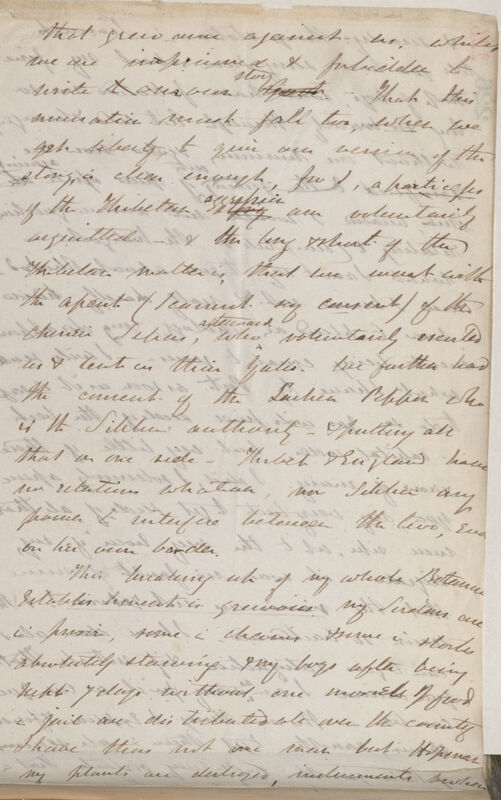 that grew ume against us, whilst
we are imprisoned & forbidden to
write our own story – That this
accusation must fall too when we
get liberty to give our version of the
story is clear enough, for I, a particeps
of the Thibetan aggression am voluntarily
acquitted – & the long & short of the
Thibetan matter is, that we went with
the assent (I cannot say consent) of the
Chinese Sepas, who afterwards, voluntarily escorted
us & lent us their Yaks. We further had
the consent of the Lachen Peppin who
is the Sikkim authority – & putting all
that on one side – Thibet & England have
no relations whatever, nor Sikkim any
power to interfere between the two, even
on her own border.
This breaking up of my whole Botanical
Establishment is grievous. my Sirdars are
in prison, some in chains & some in stocks
absolutely starving & my boys after being
kept 7 days without one morsel of food
in jail are distributed all over the country
I have thus not one man but Hoffman
my plants are destroyed, instruments